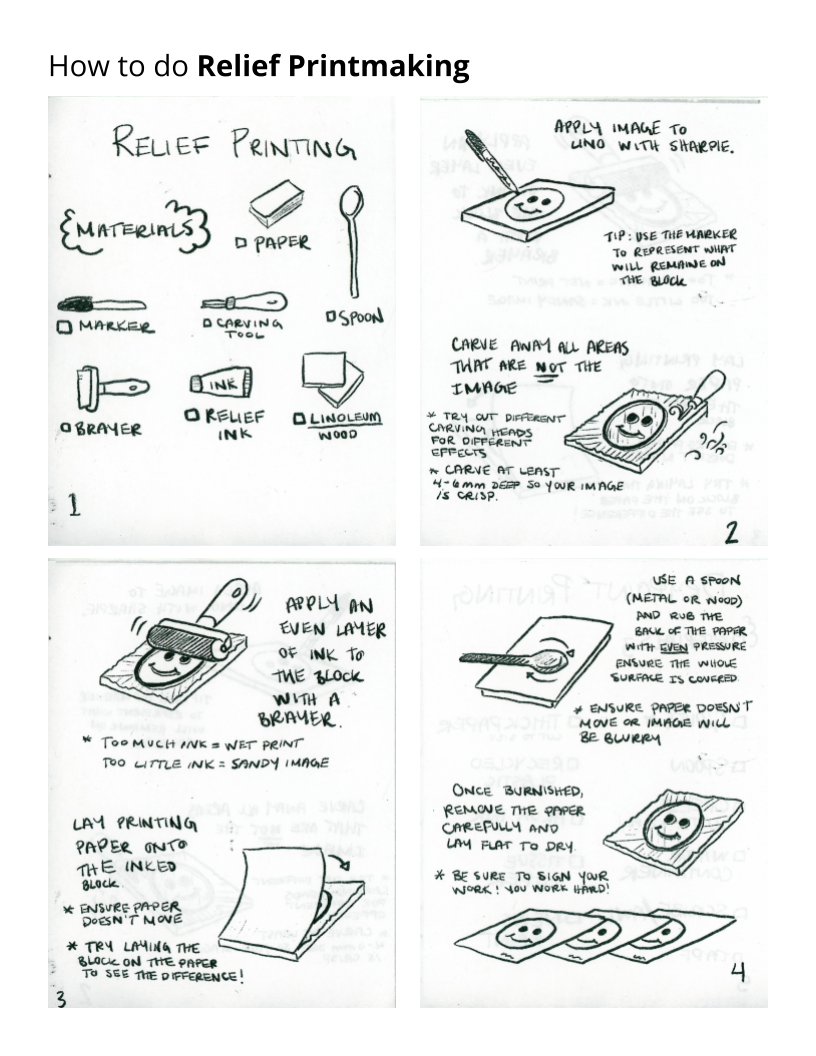 How to do Relief Printmaking
RELIEF PRINTING
MATERIALS
PAPER
SPOON
MARKER
CARVING
TOOL
BRAYER
INK
RELIEF
INK
LINOLEUM
WOOD
1
APPLY IMAGE TO
LINO WITH SHARPIE.
TIP: USE THE MARKER
TO REPRESENT WHAT
WILL REMAINE ON
THE BLOCK
CARVE AWAY ALL AREAS
THAT ARE NOT THE
IMAGE
* TRY OUT DIFFERENT
CARVING HEADS
FOR DIFFERENT
EFFECTS
* CARVE AT LEAST
4-6mm DEEP SO YOUR IMAGE
IS CRISP.
2
APPLY AN
EVEN LAYER
OF INK TO
THE BLOCK
WITH A
BRAYER.
* TOO MUCH INK = WET PRINT
TOO LITTLE INK = SANDY IMAGE
LAY PRINTING
PAPER ONTO
THE INKED
BLOCK.
* ENSURE PAPER
DOESN'T MOVE
* TRY LAYING THE
BLOCK ON THE PAPER
TO SEE THE DIFFERENCE!
3
USE A SPOON
(METAL OR WOOD)
AND RUB THE
BACK OF THE PAPER
WITH EVEN PRESSURE
ENSURE THE WHOLE
SURFACE IS COVERED
* ENSURE PAPER DOESN'T
MOVE OR IMAGE WILL
BE BLURRY
ONCE BURNISHED,
REMOVE THE PAPER
CAREFULLY AND
LAY FLAT TO DRY.
* BE SURE TO SIGN YOUR
WORK! YOU WORK HARD!
4